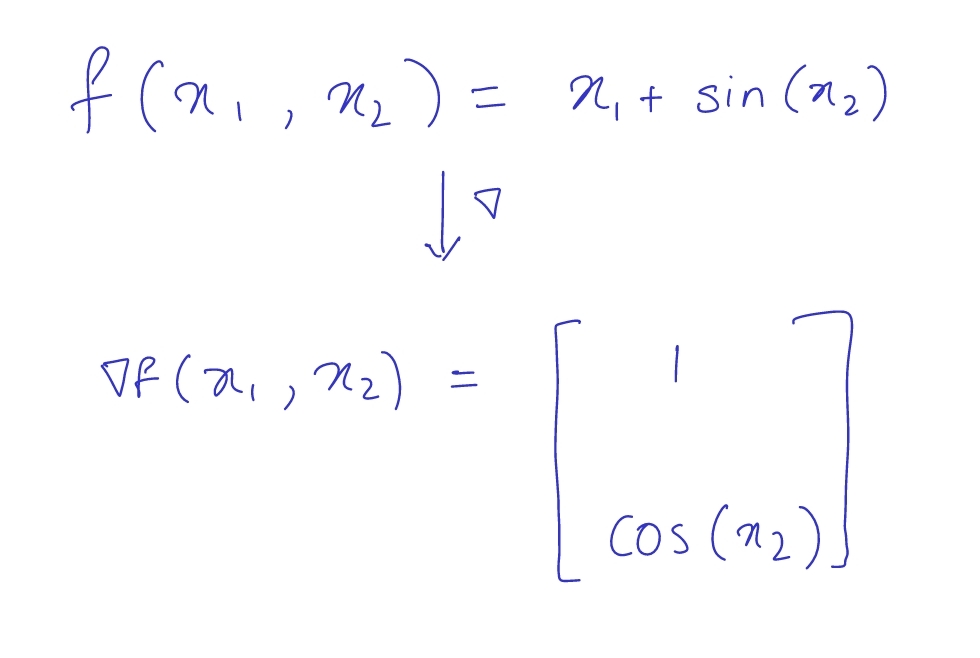 f(x₁, x₂) = x₁ + sin(x₂)
↓ ∇
∇f(x₁, x₂) = [ 1
cos(x₂) ]